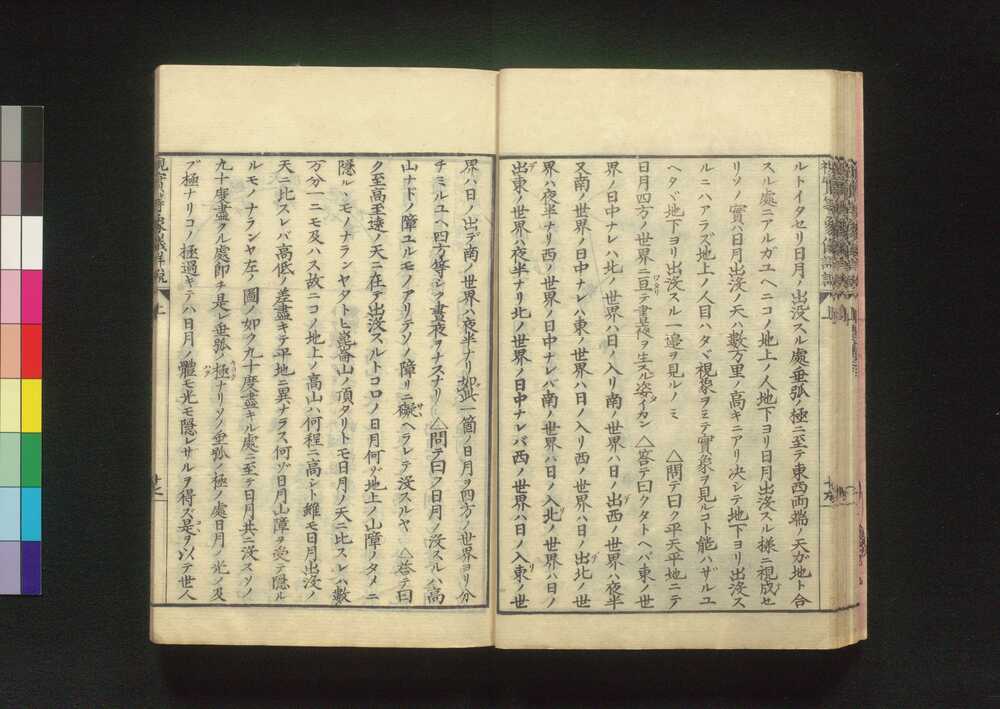 ルトイタセリ日月ノ出没スル處垂弧ノ極ニ至テ東西両端ノ天ガ地ト合
スル處ニアルガユヘニコノ地上ノ人地下ヨリ日月出没スル様ニ視成セ
リソノ實ハ日月出没ノ天ハ數万里ノ高キニアリ决シテ地下ヨリ出没ス
ルニハアラズ地上ノ人目ハタヾ視象ヲミテ實象ヲ見ルコト能ハザルユ
ヘタヾ地下ヨリ出没スル一邉ヲ見ルノミ △問テ曰ク平天平地ニテ
日月四方ノ世界ニ亘テ晝夜ヲ生スル姿イカン △答テ曰クタトヘバ東ノ世
界ノ日中ナレハ北ノ世界ハ日ノ入リ南ノ世界ハ日ノ出西ノ世界ハ夜半
又南ノ世界ノ日中ナレハ東ノ世界ハ日ノ入リ西ノ世界ハ日ノ出北ノ世
界ハ夜半ナリ西ノ世界ノ日中ナレバ南ノ世界ハ日ノ入北ノ世界ハ日ノ
出東ノ世界ハ夜半ナリ北ノ世界ノ日中ナレバ西ノ世界ハ日ノ入東ノ世
界ハ日ノ出デ南ノ世界ハ夜半ナリ如此一箇ノ日月ヲ四方ノ世界ヨリ分
チミルユヘ四方等シク晝夜ヲナスナリ △問テ曰ク日月ノ没スルハ高
山ナドノ障ユルモノアリテソノ障リニ礙ヘラレテ没スルヤ △答テ曰
ク至高至遠ノ天ニ在テ出没スルトコロノ日月何ゾ地上ノ山障ノタメニ
隠ルヽモノナランヤタトヒ崑崙山ノ頂タリトモ日月ノ天ニ比スレハ數
万分一ニモ及ハス故ニコノ地上ノ高山ハ何程ニ高シト雖モ日月出没ノ
天ニ比スレバ高低ノ差盡キテ平地ニ異ナラス何ゾ日月山障ヲ受テ隠ル
ルモノナランヤ左ノ圖ノ如ク九十度盡キル處ニ至テ日月共ニ没スソノ
九十度盡クル處即チ是レ垂弧ノ極ナリソノ垂弧ノ極ノ處日月ノ光ノ及
ブ極ナリコノ極過キテハ日月ノ體モ光モ隠レサルヲ得ズ是ヲ以テ世人